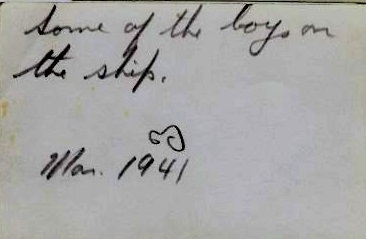 Some of the boys on
the ship.
Mar. 1941